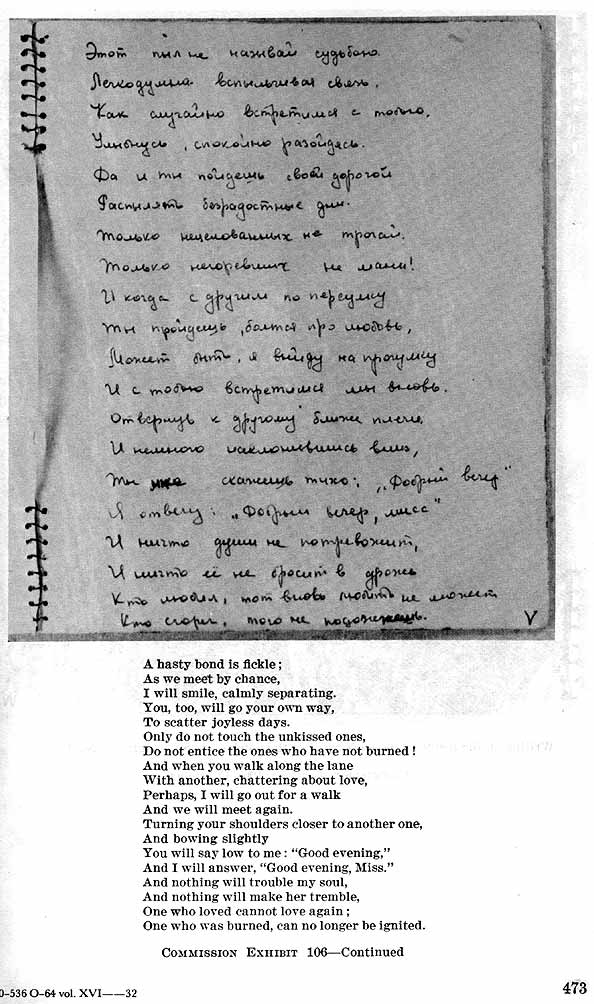 Этот пыл не называй судьбою
Легкодумна вспыльчивая связь.
Как случайно встретимся с тобою,
Улыбнусь, спокойно разойдясь.
Да и ты пойдешь своей дорогой
Распылять безрадостные дни.
Только нецелованных не трогай.
Только негоревших не мани!
И когда с другим по переулку
Ты пройдешь, болтая про любовь,
Может быть, я выйду на прогулку
И с тобою встретимся мы вновь.
Отвернув к другому ближе плечи,
И немного наклонившись вниз,
Ты скажешь тихо: „Добрый вечер"
Я отвечу: „Добрый вечер, мисс"
И ничто души не потревожит,
И ничто её не бросит в дрожь
Кто любил, тот вновь любить не может
Кто сгорел, того не подожжешь.
V
A hasty bond is fickle;
As we meet by chance,
I will smile, calmly separating.
You, too, will go your own way,
To scatter joyless days.
Only do not touch the unkissed ones,
Do not entice the ones who have not burned!
And when you walk along the lane
With another, chattering about love,
Perhaps, I will go out for a walk
And we will meet again.
Turning your shoulders closer to another one,
And bowing slightly
You will say low to me: “Good evening,”
And I will answer, “Good evening, Miss.”
And nothing will trouble my soul,
And nothing will make her tremble,
One who loved cannot love again;
One who was burned, can no longer be ignited.
COMMISSION EXHIBIT 106—Continued
0-536 O-64 vol. XVI——32
473